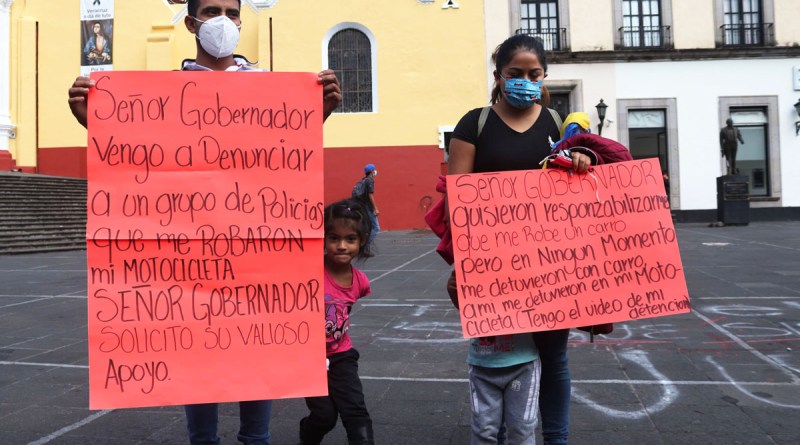 Señor Gobernador
Vengo a Denunciar
a un grupo de Policias
que me ROBARON
mi MOTOCICLETA
SEÑOR GOBERNADOR
SOLICITO SU VALIOSO
Apoyo.
SEÑOR GOBERNADOR
quisieron responzabilizarme
que me Robe un carro
pero en Ningún Momento
me detuvieron con carro
a mi me detuvieron en mi Moto-
cicleta (Tengo el video de mi
detención